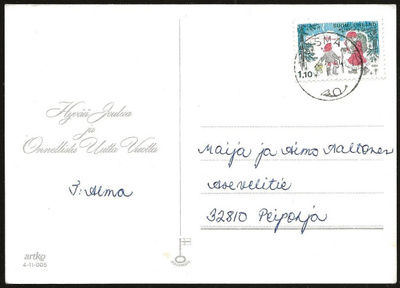 SUOMI FINLAND
1,10
Hyvää Joulua
ja
Onnellista Uutta Vuotta
T: Alma
Maija ja Aimo Aaltonen
Asevelitie
32810 Peipohja
artko
4-11-005